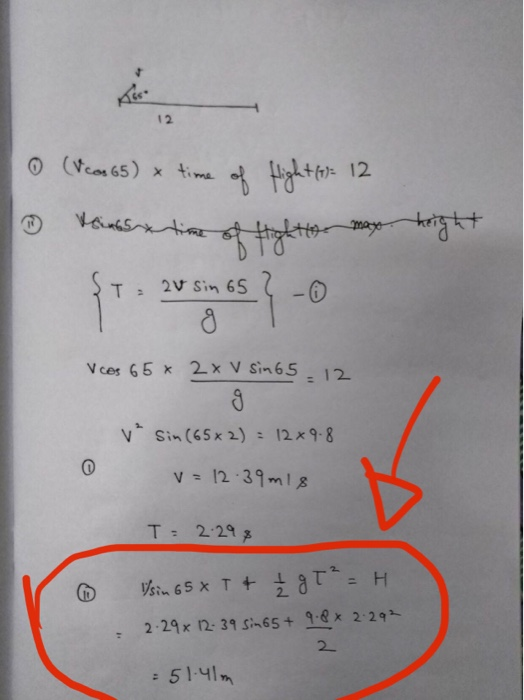 v
65°
12
① (Vcos65) × time of flight(T)= 12
② Vsin65 × time of flight(T)= max. height
{ T = 2V sin 65 / g } - ①
Vcos 65 × 2 × V sin65 / g = 12
V² sin(65×2) = 12×9.8
① V = 12.39m/s
T = 2.29s
② Vsin65 × T + 1/2 gT² = H
= 2.29× 12.39 sin65 + 9.8 × 2.29² / 2
= 51.41m